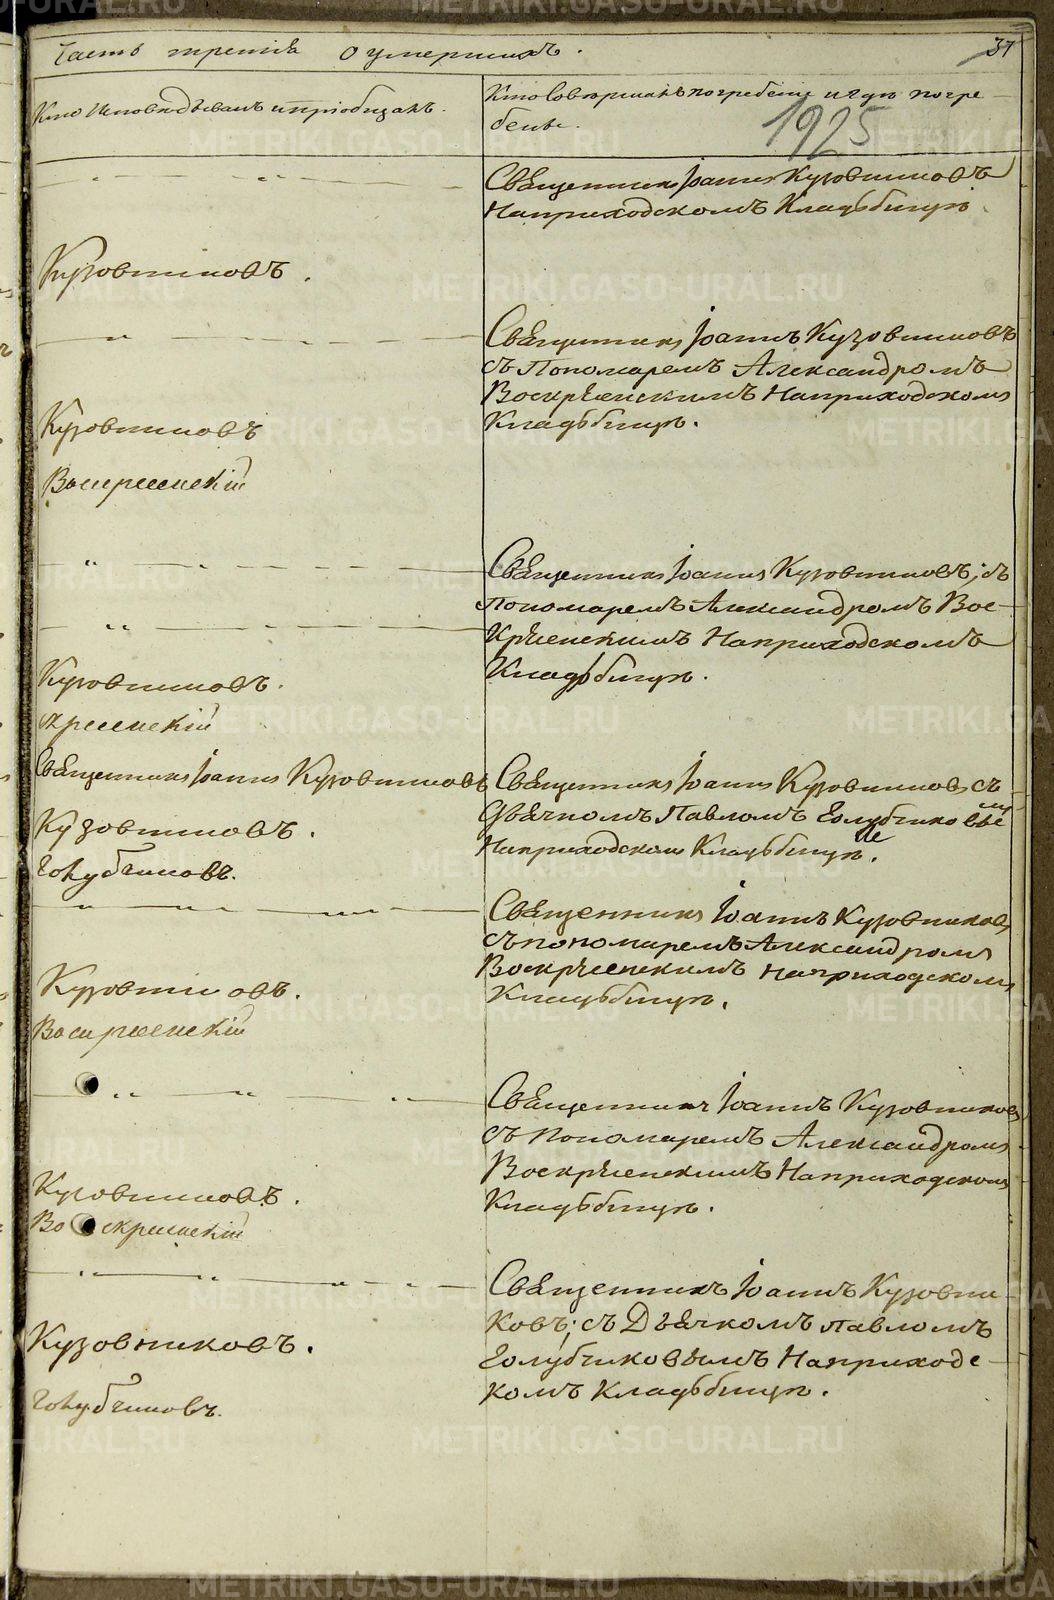 Часть третія О умершихъ.
37
Кто Исповѣдывалъ и пріобщалъ.
Кто Совершалъ погребеніе и гдѣ погре
бены.
1925
Священникъ Іоаннъ Кузовниковъ
На приходскомъ Кладьбищѣ.
Кузовниковъ.
Священникъ Іоаннъ Кузовниковъ
съ Пономаремъ Александромъ
Воскрѣсенскимъ На приходскомъ
Кладьбищѣ.
Кузовниковъ
Воскресенскій
Священникъ Іоаннъ Кузовниковъ; съ
Пономаремъ Александромъ Вос-
крѣсенскимъ На приходскомъ
Кладьбищѣ.
Кузовниковъ.
кресенскій
Священникъ Іоаннъ Кузовниковъ
Священникъ Іоаннъ Кузовниковъ съ
Дьячкомъ Павломъ Голубчиковы
На приходскомъ Кладьбищѣ.
Кузовниковъ.
Голубчиковъ.
Священникъ Іоаннъ Кузовниковъ
съ пономаремъ Александромъ
Воскрѣсенскимъ на приходскомъ
Кладьбищѣ.
Кузовниковъ.
Воскресенскій
Священникъ Іоаннъ Кузовниковъ
съ Пономаремъ Александромъ
Воскрѣсенскимъ На приходскомъ
Кладьбищѣ.
Кузовниковъ.
Воскресенскій
Священникъ Іоаннъ Кузовни-
ковъ; съ Дьячкомъ Павломъ
Голубчиковымъ На приходс-
комъ Кладьбищѣ.
Кузовниковъ.
Голубчиковъ.
METRIKI.GASO-URAL.RU